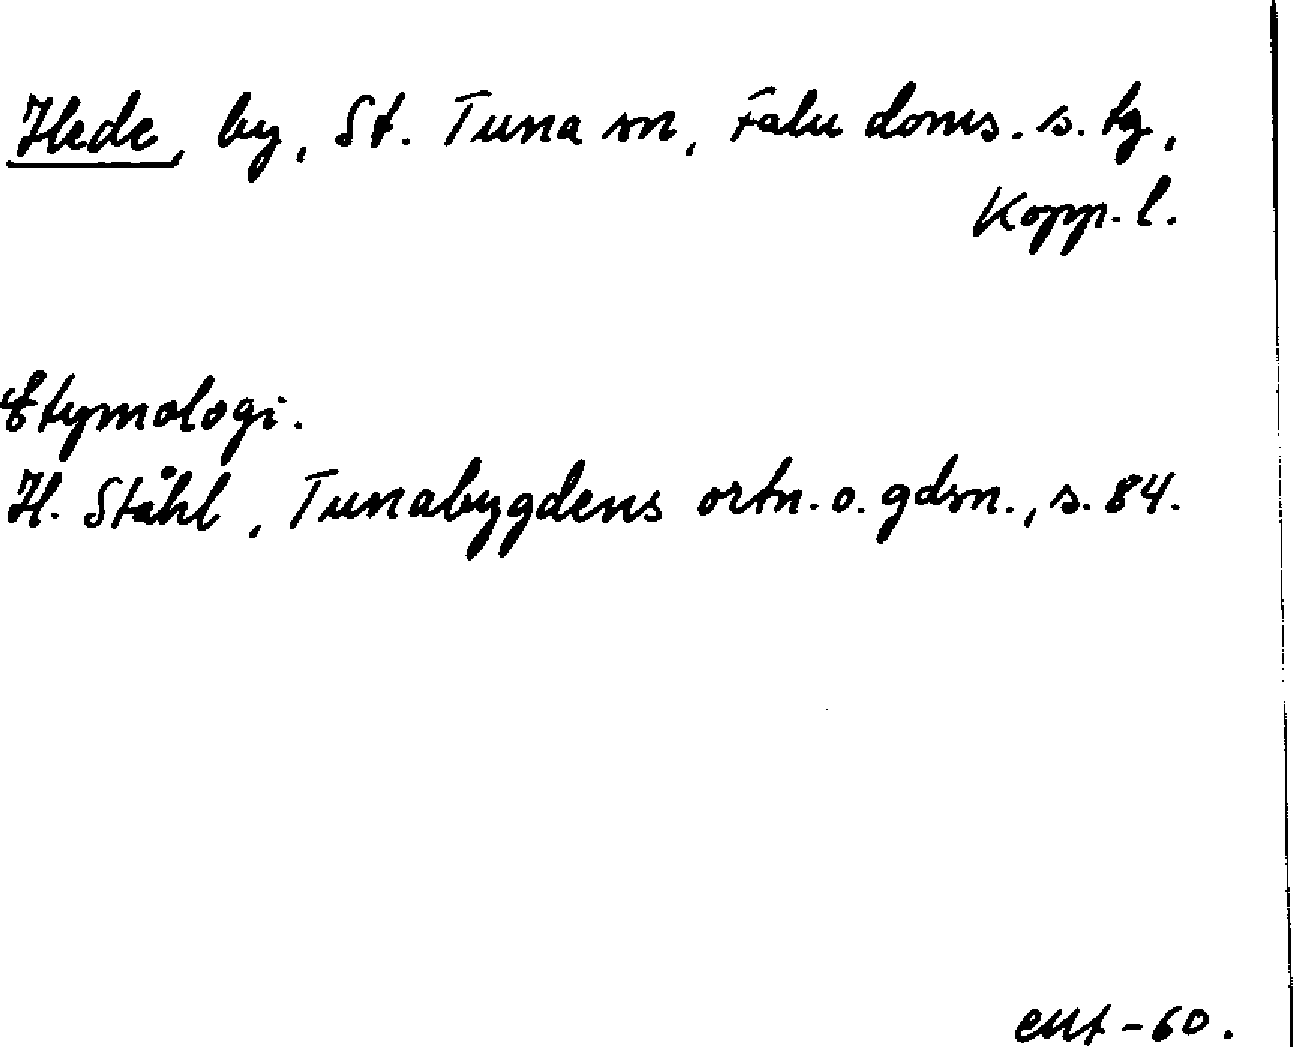 Hede, by, St. Tuna sn, Falu doms. s. tg,
Kopp. l.
Etymologi.
H. Ståhl, Tunabygdens ortn. o. gdsn., s. 84.
-60.